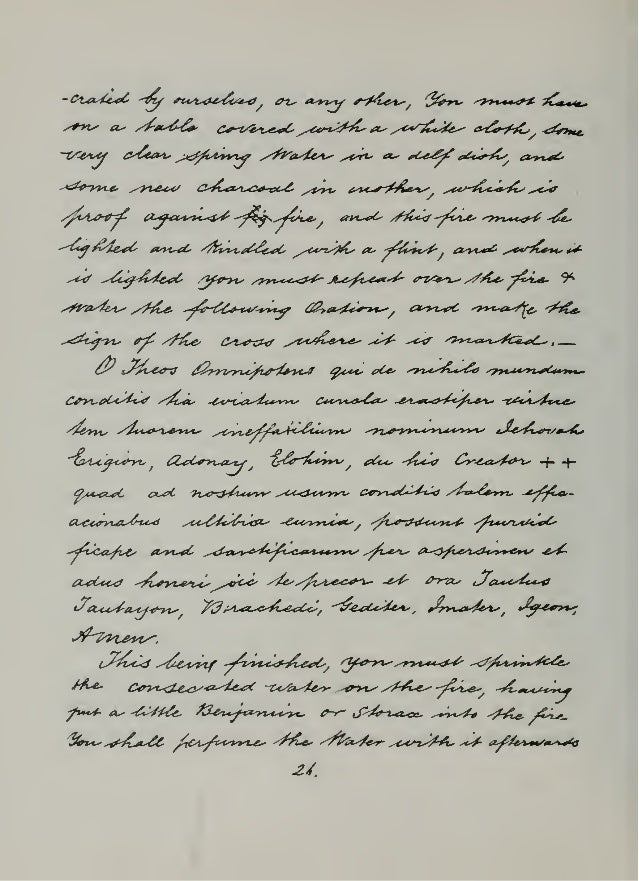 -crated by ourselves, or any other, You must have
on a table covered with a white cloth, some
very clear spring Water in a delf dish, and
some new charcoal in another, which is
proof against fire, and this fire must be
lighted and Kindled with a flint, and when it
is lighted you must repeat over the fire &
water the following Oration, and make the
sign of the cross where it is marked.—
O Theos Omnipotens qui de nihilo mundum
conditis tia eviatum cunola erastiper virtue
tem tuorem ineffatilium nominum Jehovah
Erigion, Adonay, Elohim, du his Creator + +
quad ad noshum usum conditis talem effia-
acionabus ultibia eumia, possunt purvid
ficape and sanctificarum per aspersinem et
adus honeri sic te precor et ora Tautus
Tautayon, Barachedi, Gediter, Imater, Igeon,
Amen.
This being finished, you must sprinkle
the consecated water on the fire, having
put a little Benjamin or Storax into the fire
You shall perfume the Water with it afterwards
26.